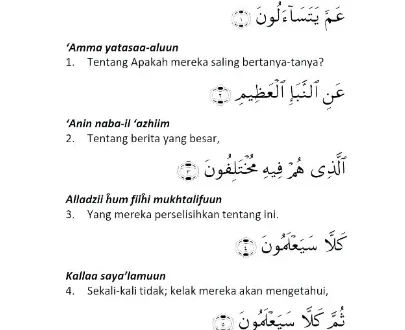 عَمَّ يَتَسَآءَلُونَ ۝١
‘Amma yatasaa-aluun
1. Tentang Apakah mereka saling bertanya-tanya?
عَنِ ٱلنَّبَإِ ٱلْعَظِيمِ ۝٢
‘Anin naba-il ‘azhiim
2. Tentang berita yang besar,
ٱلَّذِى هُمْ فِيهِ مُخْتَلِفُونَ ۝٣
Alladzii ĥum fiiĥi mukhtalifuun
3. Yang mereka perselisihkan tentang ini.
كَلَّا سَيَعْلَمُونَ ۝٤
Kallaa saya’lamuun
4. Sekali-kali tidak; kelak mereka akan mengetahui,
ثُمَّ كَلَّا سَيَعْلَمُونَ ۝٥